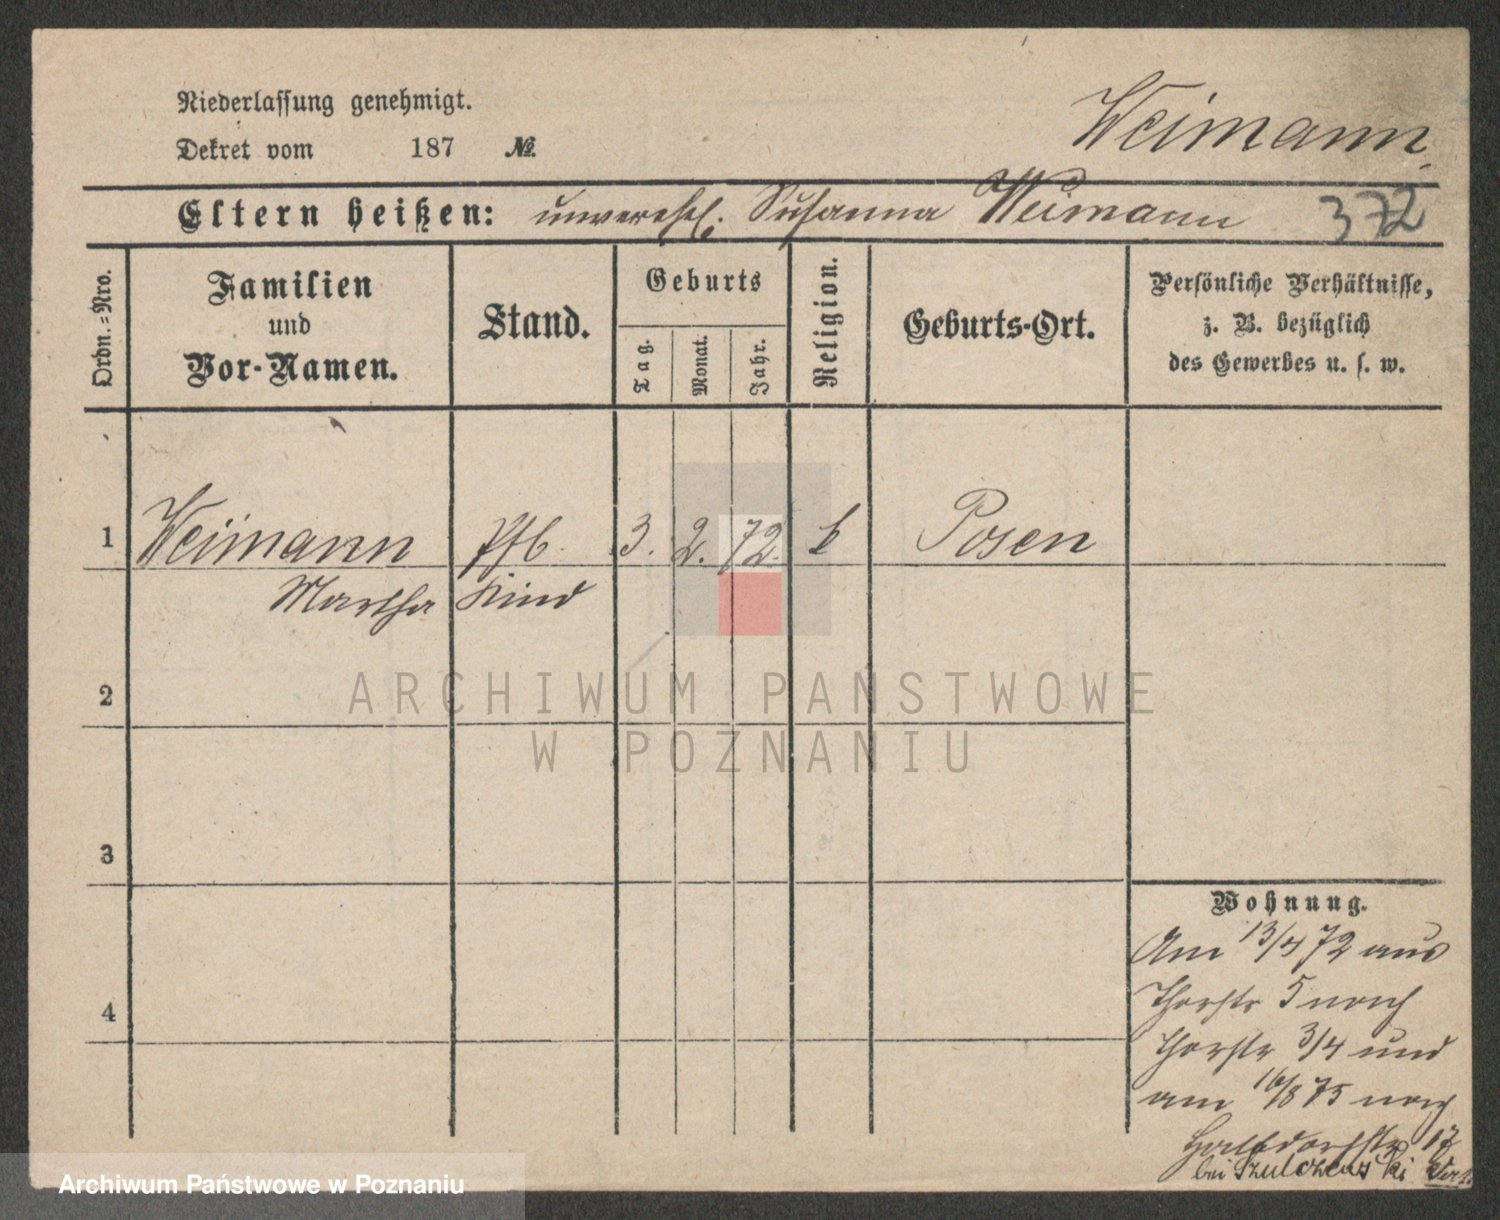 Niederlassung genehmigt.
Dekret vom 187 №
Weimann
Eltern heißen: unverehl. Susanna Weimann 372
Ordn.=Nro.
Familien
und
Vor-Namen.
Stand.
Geburts
Tag.
Monat.
Jahr.
Religion.
Geburts-Ort.
Persönliche Verhältnisse,
z. B. bezüglich
des Gewerbes u. s. w.
1 Weimann 3. 2. 72. Posen
Martha Kind
2
3
4
Wohnung.
Am 13/4 72 aus
Thorstr 5 nach
Thorstr 3/4 und
am 16/8 75 nach
Halbdorfstr 17
bei
ARCHIWUM PAŃSTWOWE
W POZNANIU
Archiwum Państwowe w Poznaniu